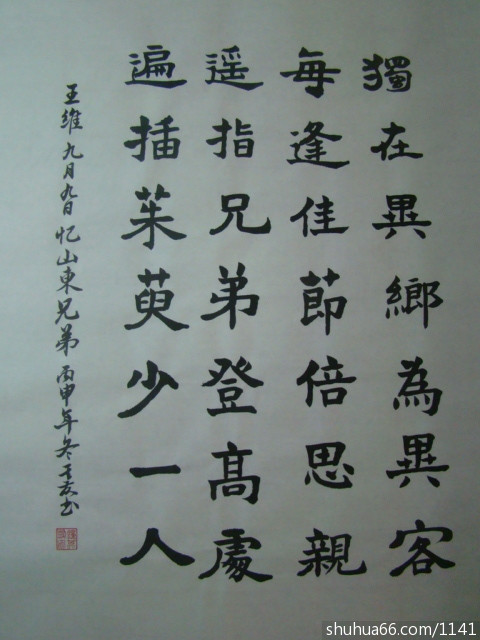 獨在異鄉為異客
每逢佳節倍思親
遥指兄弟登髙處
遍插茱萸少一人
王維九月九日忆山東兄弟 丙申年冬
shuhua66.com/1141